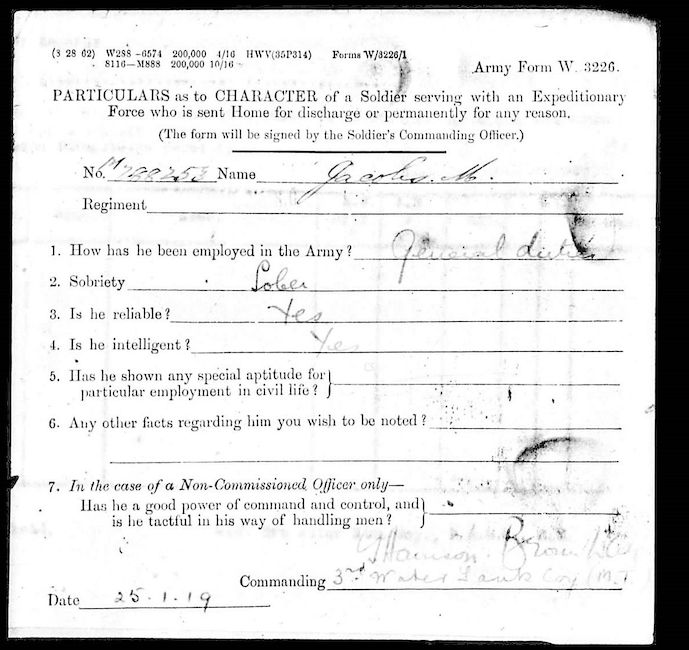 (3 28 62) W288-6574 200,000 4/16 HWV(35P314) Forms W/3226/1
8116-M888 200,000 10/16
Army Form W. 3226.
PARTICULARS as to CHARACTER of a Soldier serving with an Expeditionary
Force who is sent Home for discharge or permanently for any reason.
(The form will be signed by the Soldier's Commanding Officer.)
No. Name Jacobs. M.
Regiment
1. How has he been employed in the Army? General duties
2. Sobriety Sober
3. Is he reliable? Yes
4. Is he intelligent? Yes
5. Has he shown any special aptitude for
particular employment in civil life?
6. Any other facts regarding him you wish to be noted?
7. In the case of a Non-Commissioned Officer only—
Has he a good power of command and control, and
is he tactful in his way of handling men?
Brown
Commanding 3rd Water Tank Coy (M.T.
Date 25.1.19